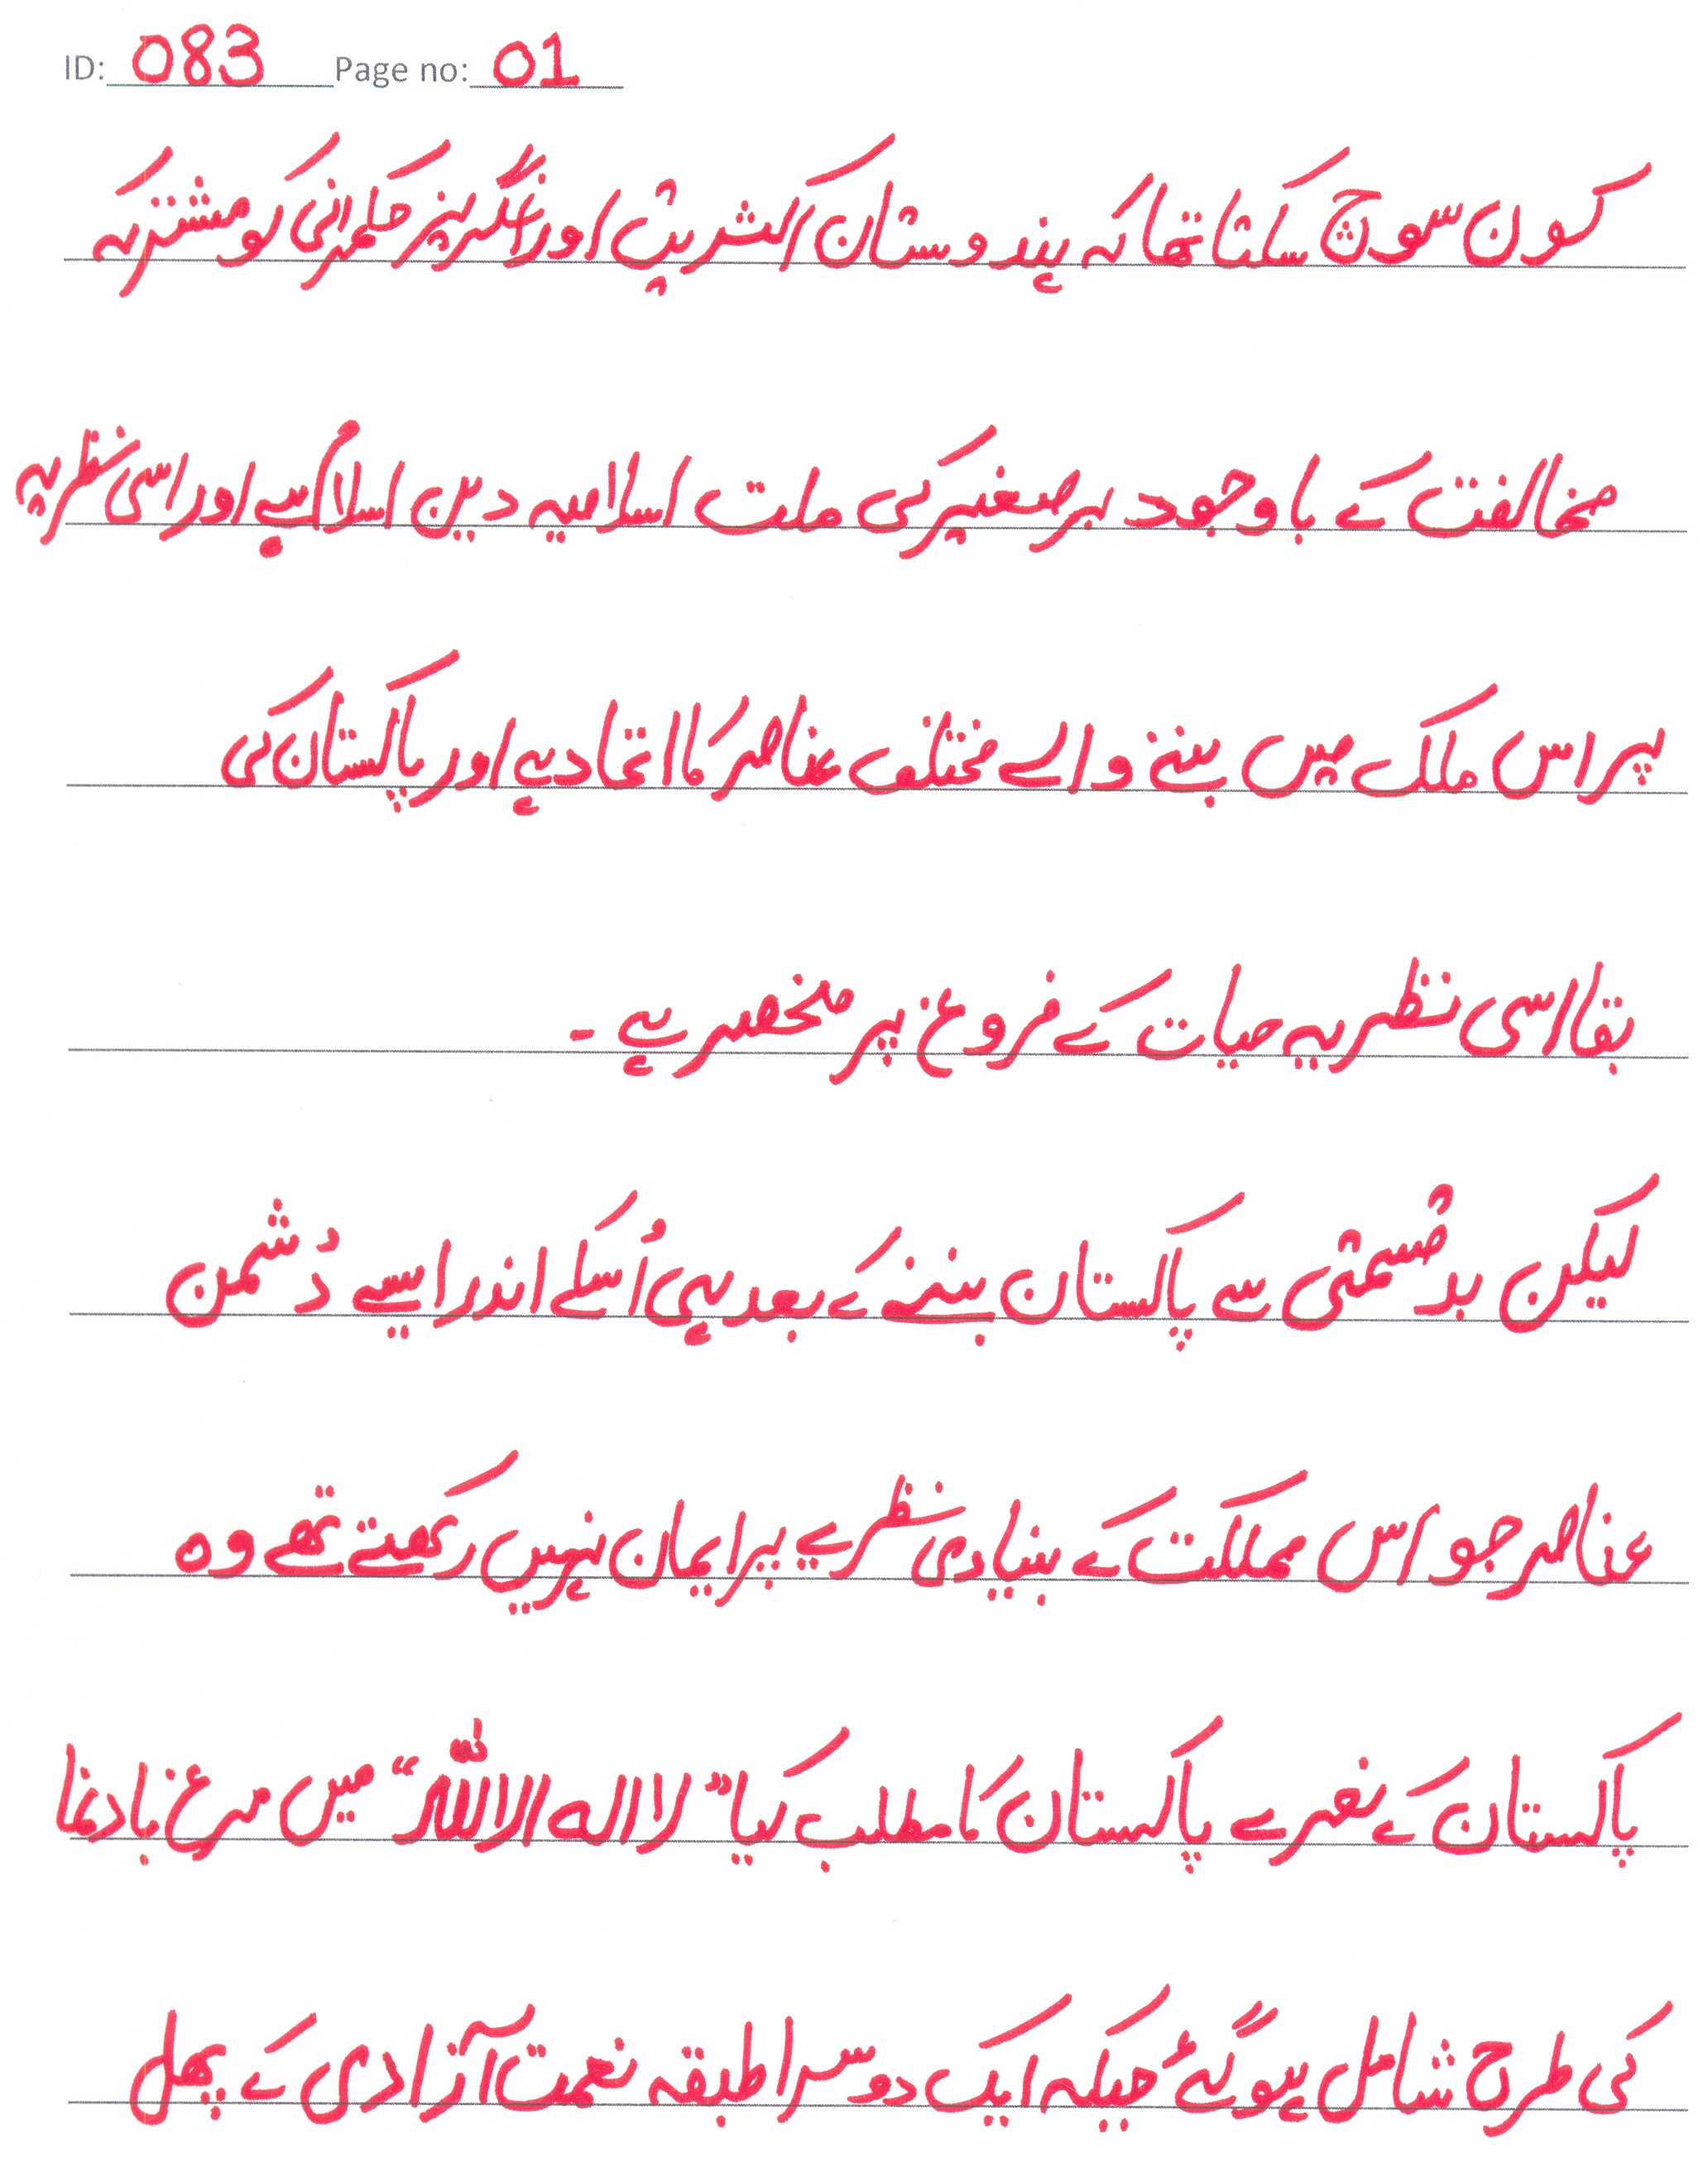 ID: 083 Page no: 01
کون سوچ سکتا تھا کہ ہندوستان اکثریت اور انگریز حکمرانی کو مشترکہ
مخالفت کے باوجود برصغیر کی ملت اسلامیہ دین اسلام ہے اور اسی نظریہ
پر اس ملک میں بسنے والے مختلف عناصر کا اتحاد ہے اور پاکستان کی
بقا اسی نظریہ حیات کے فروغ پر منحصر ہے ۔
لیکن بدقسمتی سے پاکستان بننے کے بعد ہی اُسکے اندر ایسے دُشمن
عناصر جو اس مملکت کے بنیادی نظریے پر ایمان نہیں رکھتے تھے وہ
پاکستان کے نعرے پاکستان کا مطلب کیا” لا الہ الا اللہ“ میں مرغ بادنما
کی طرح شامل ہوگئے جبکہ ایک دوسرا طبقہ نعمت آزادی کے پھل